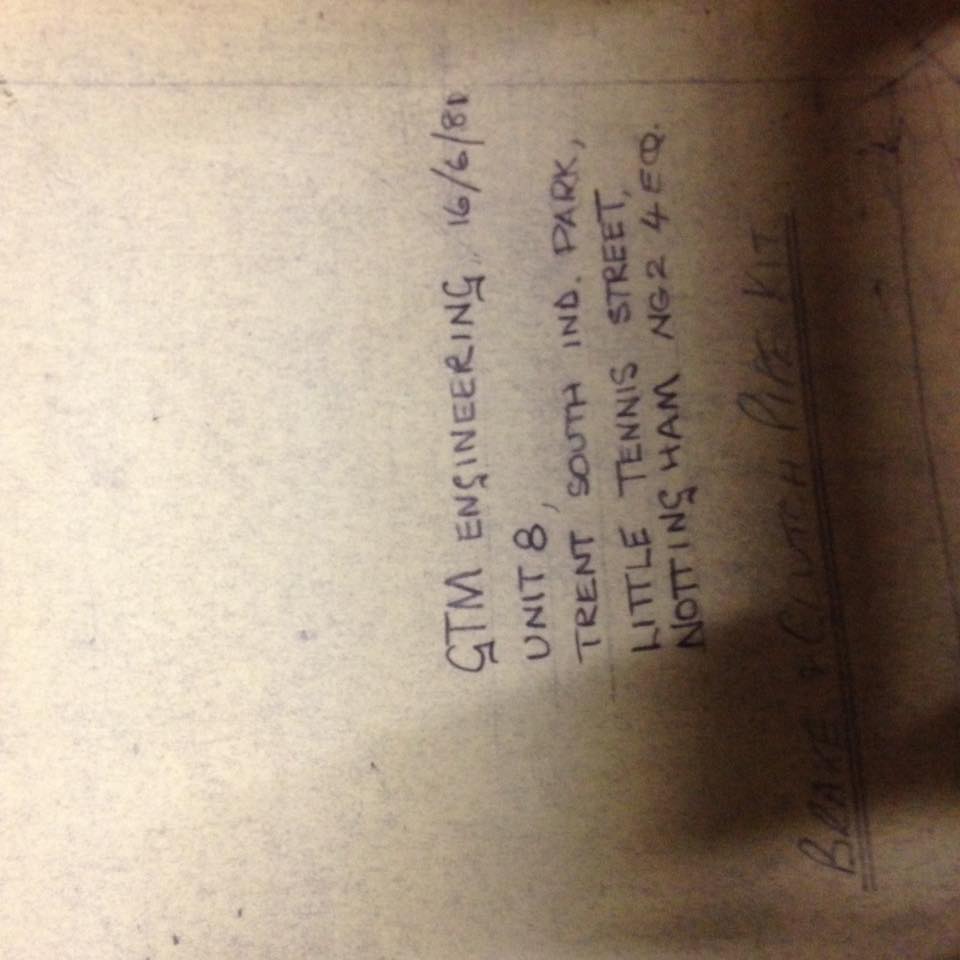 GTM ENGINEERING, 16/6/81
UNIT 8,
TRENT SOUTH IND. PARK,
LITTLE TENNIS STREET,
NOTTINGHAM NG2 4EQ.
BRAKE & CLUTCH PIPE KIT